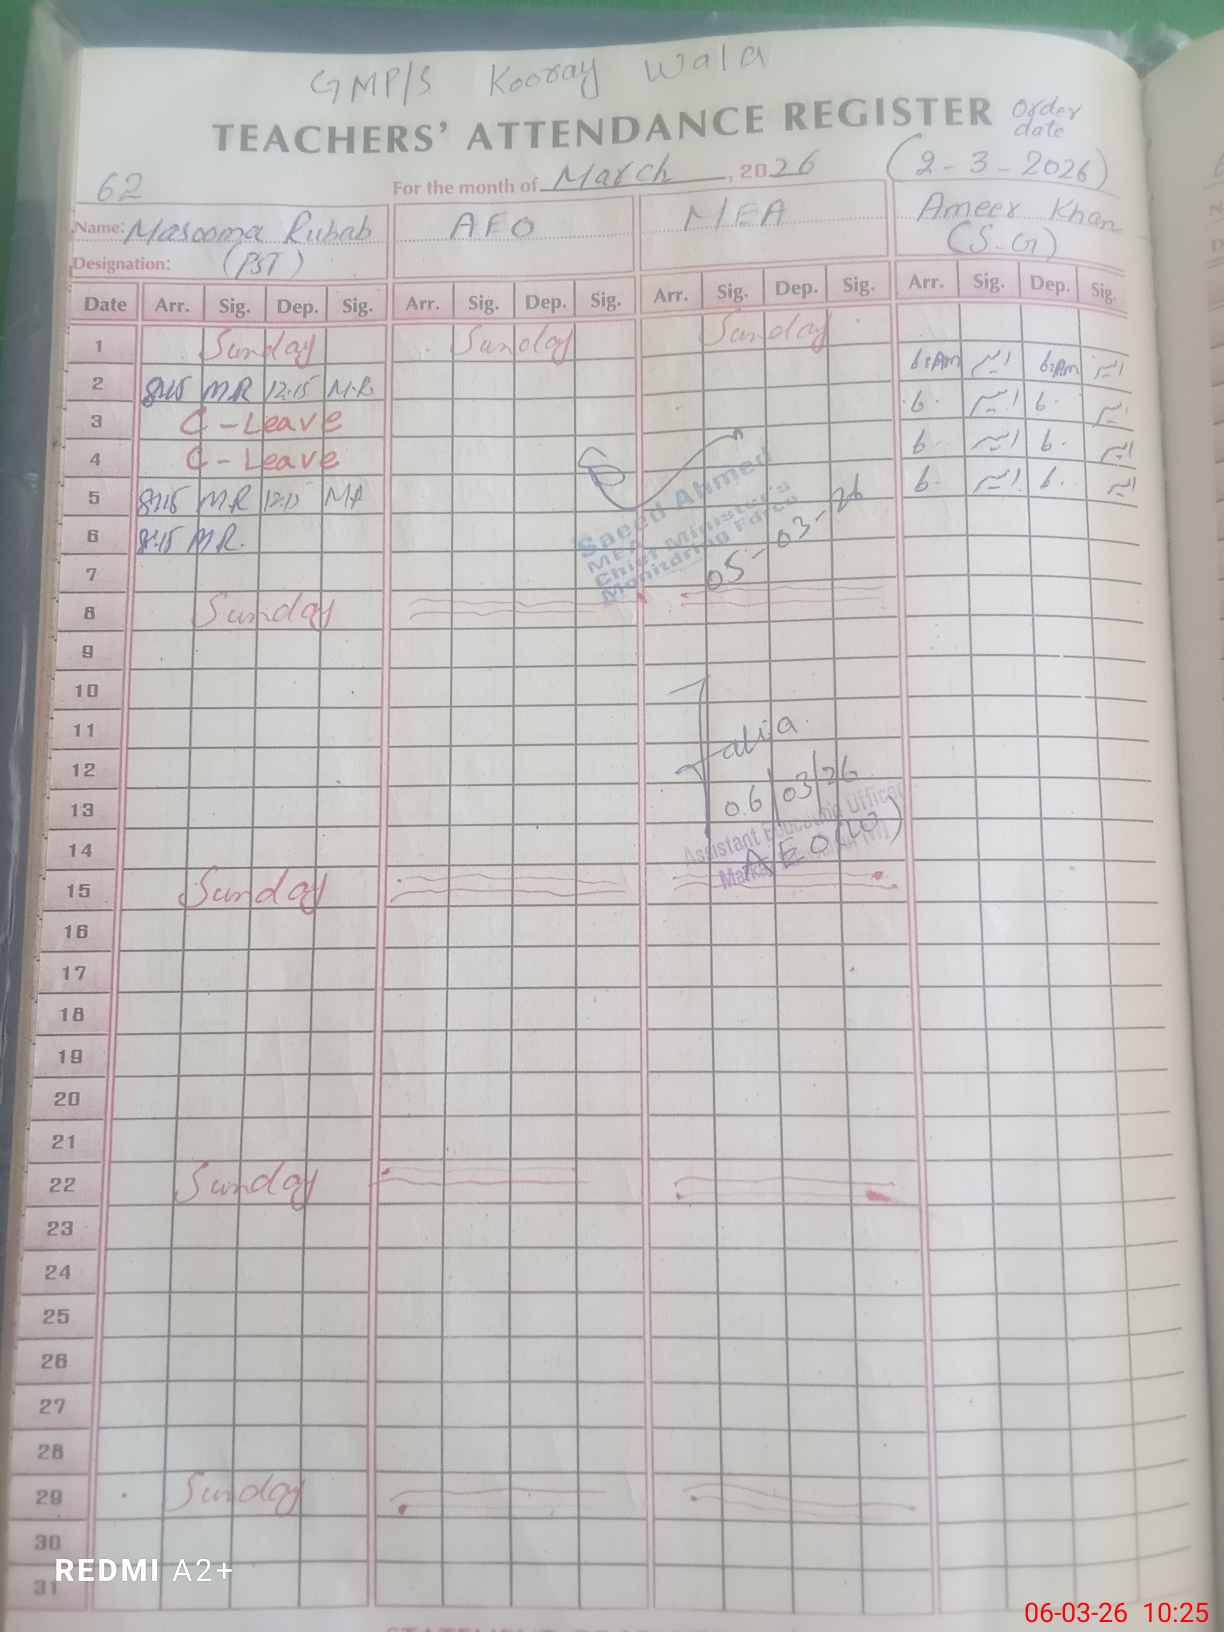 GMP/S Kooray Wala
TEACHERS' ATTENDANCE REGISTER
Order date
(2-3-2026)
62
For the month of March, 2026
Name: Masooma Rubab
AEO
MEA
Ameer Khan
Designation: (PST)
(S.G)
Date Arr. Sig. Dep. Sig. Arr. Sig. Dep. Sig. Arr. Sig. Dep. Sig. Arr. Sig. Dep. Sig.
1 Sunday Sunday Sunday
2 8:15 M.R 12:15 M.R. 6:AM 6:AM
3 C-Leave 6. 6.
4 C-Leave 6. 6.
5 8:15 M.R 12:15 6. 6.
6 8:15 M.R.
7
Saeed Ahmed
MEA
Chief Minister's
Monitoring Force
05-03-26
8 Sunday
9
10
11
12
13
14
06/03/26
Assistant Education Officer
AEO
15 Sunday
16
17
18
19
20
21
22 Sunday
23
24
25
26
27
28
29 Sunday
30
31
REDMI A2+
06-03-26 10:25